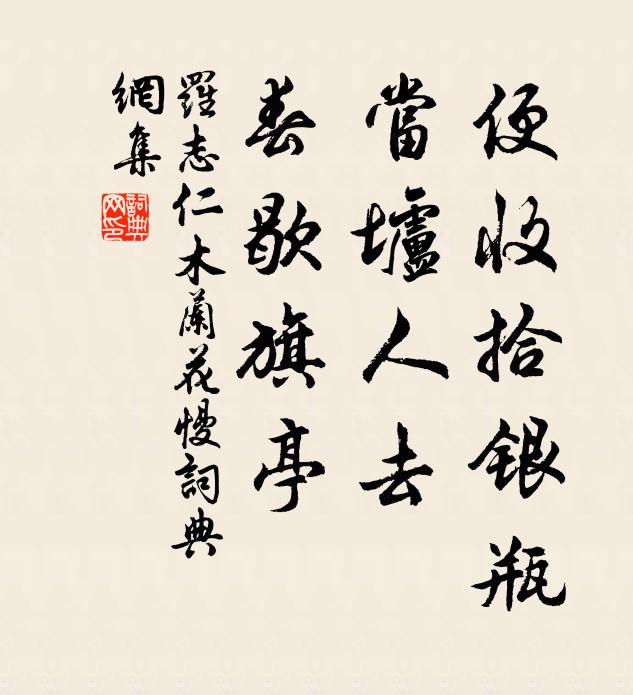 便收拾銀瓶
當壚人去
春歇旗亭
羅志仁木蘭花慢詞典
網集
詞典
网印